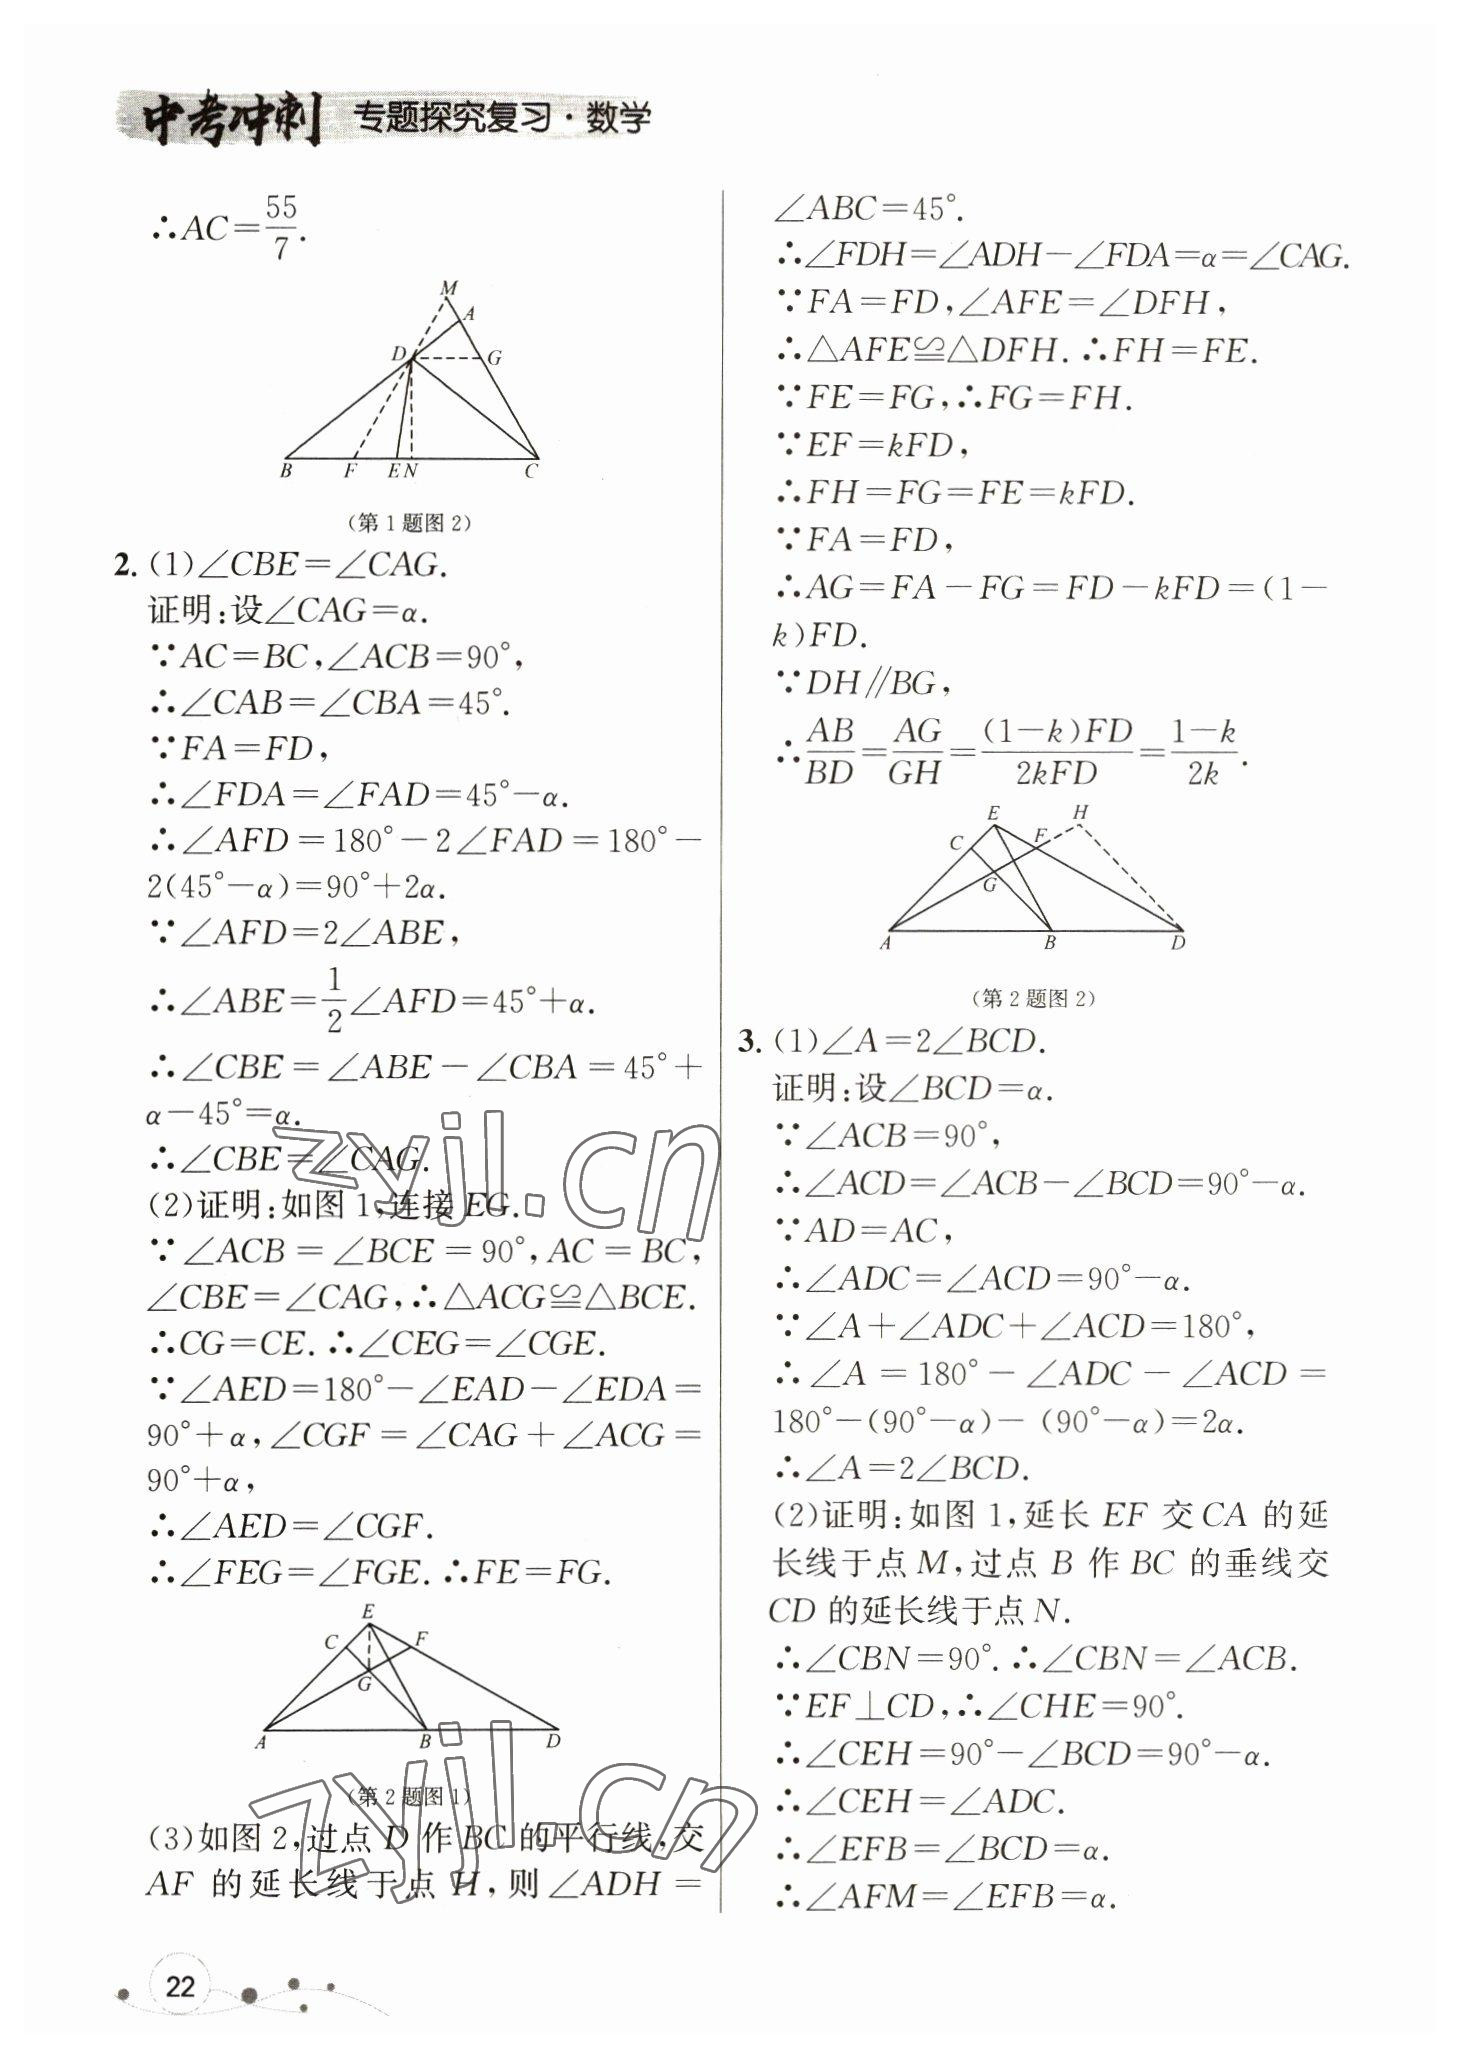 中考冲刺 专题探究复习·数学
∴AC=55/7.
M
A
D
G
B F E N C
(第1题图2)
2. (1)∠CBE=∠CAG.
证明:设∠CAG=α.
∵AC=BC,∠ACB=90°,
∴∠CAB=∠CBA=45°.
∵FA=FD,
∴∠FDA=∠FAD=45°-α.
∴∠AFD=180°-2∠FAD=180°-
2(45°-α)=90°+2α.
∵∠AFD=2∠ABE,
∴∠ABE=1/2∠AFD=45°+α.
∴∠CBE=∠ABE-∠CBA=45°+
α-45°=α.
∴∠CBE=∠CAG.
(2)证明:如图1,连接EG.
∵∠ACB=∠BCE=90°,AC=BC,
∠CBE=∠CAG,∴△ACG≌△BCE.
∴CG=CE.∴∠CEG=∠CGE.
∵∠AED=180°-∠EAD-∠EDA=
90°+α,∠CGF=∠CAG+∠ACG=
90°+α,
∴∠AED=∠CGF.
∴∠FEG=∠FGE.∴FE=FG.
E
C F
G
A B D
(第2题图1)
(3)如图2,过点D作BC的平行线,交
AF的延长线于点H,则∠ADH=
∠ABC=45°.
∴∠FDH=∠ADH-∠FDA=α=∠CAG.
∵FA=FD,∠AFE=∠DFH,
∴△AFE≌△DFH.∴FH=FE.
∵FE=FG,∴FG=FH.
∵EF=kFD,
∴FH=FG=FE=kFD.
∵FA=FD,
∴AG=FA-FG=FD-kFD=(1-
k)FD.
∵DH∥BG,
∴AB/BD=AG/GH=(1-k)FD/2kFD=1-k/2k.
E H
C F
G
A B D
(第2题图2)
3. (1)∠A=2∠BCD.
证明:设∠BCD=α.
∵∠ACB=90°,
∴∠ACD=∠ACB-∠BCD=90°-α.
∵AD=AC,
∴∠ADC=∠ACD=90°-α.
∵∠A+∠ADC+∠ACD=180°,
∴∠A=180°-∠ADC-∠ACD=
180°-(90°-α)-(90°-α)=2α.
∴∠A=2∠BCD.
(2)证明:如图1,延长EF交CA的延
长线于点M,过点B作BC的垂线交
CD的延长线于点N.
∴∠CBN=90°.∴∠CBN=∠ACB.
∵EF⊥CD,∴∠CHE=90°.
∴∠CEH=90°-∠BCD=90°-α.
∴∠CEH=∠ADC.
∴∠EFB=∠BCD=α.
∴∠AFM=∠EFB=α.
zyjl.cn
zyjl.cn
22